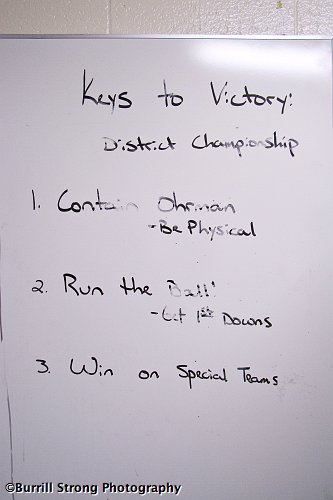 Keys to Victory:
District Championship
1. Contain Ohrman
- Be Physical
2. Run the Ball!
- Get 1st Downs
3. Win on Special Teams
©Burrill Strong Photography